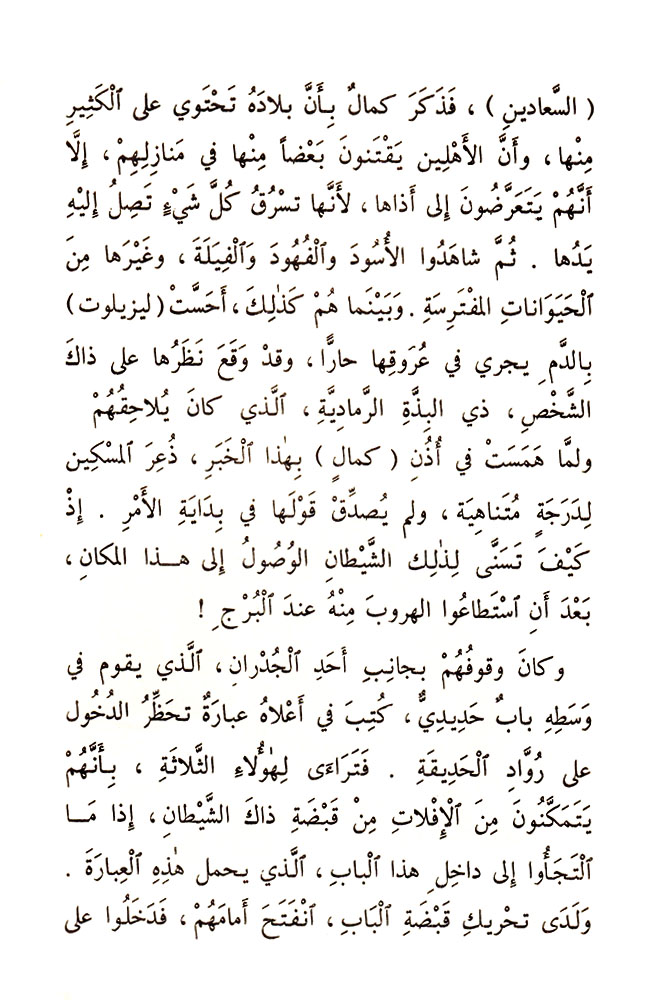 ( السَّعادينِ ) ، فَذَكَرَ كمالٌ بِأَنَّ بلادَهُ تَحْتَوي على ٱلْكَثِيرِ
مِنْها ، وأَنَّ الأَهْلِين يَقْتَنونَ بَعْضاً مِنْها في مَنازِلِهِمْ ، إِلَّا
أَنَّهُمْ يَتَعَرَّضُونَ إِلى أَذاها ، لأَنَّها تسْرُقُ كُلَّ شَيْءٍ تَصِلُ إِليْهِ
يَدُها . ثُمَّ شاهَدُوا الأُسُودَ وٱلْفُهُودَ وَٱلْفِيَلَةَ ، وغَيْرَها مِنَ
ٱلْحَيَوَاناتِ المفْتَرِسَةِ . وَبَيْنَما هُمْ كَذٰلِكَ ، أَحَسَّتْ ( ليزيلوت )
بِالدَّمِ يجري في عُرَوقِها حارًّا ، وقدْ وَقَعَ نَظَرُها على ذاكَ
الشَّخْصِ ، ذي البِذَّةِ الرَّمادِيَّةِ ، ٱلَّذي كانَ يُلاحِقُهُمْ
ولمَّا هَمَسَتْ في أُذُنِ ( كمالٍ ) بِهٰذا ٱلْخَبَرِ ، ذُعِرَ ٱلمسْكِين
لِدَرَجَةٍ مُتَناهِيَة ، ولم يُصدِّقْ قَوْلَها في بِدَايَةِ الأَمْرِ . إِذْ
كَيْفَ تَسَنَّى لِذٰلِك الشَّيْطانِ الوُصُولُ إِلى هـذا المكانِ ،
بَعْدَ أَنِ ٱسْتَطاعُوا الهروبَ مِنْهُ عندَ ٱلْبُرْجِ !
وكانَ وقوفُهُمْ بجانِبِ أَحَدِ ٱلْجُدْرانِ ، ٱلَّذي يقوم في
وَسَطِهِ بابٌ حَدِيدِيٌّ ، كُتِبَ في أَعْلاهُ عبارَةٌ تحَظِّرُ الدُخُول
على رُوَّادِ ٱلْحَدِيقَةِ . فَتَرَاءَى لِهٰؤُلاءِ الثَّلاثَةِ ، بِأَنَّهُمْ
يَتَمَكَّنُونَ مِنَ ٱلْإِفْلاتِ مِنْ قَبْضَةِ ذاكَ الشَّيْطانِ ، إِذا مَـا
ٱلْتَجَأُوا إِلى داخِلِ هذا ٱلْبابِ ، ٱلَّذي يحمل هٰذِهِ ٱلْعِبارَةَ .
وَلَدَى تحْريكِ قَبْضَةِ ٱلْبَابِ ، ٱنْفَتَحَ أَمامَهُمْ ، فَدَخَلُوا على